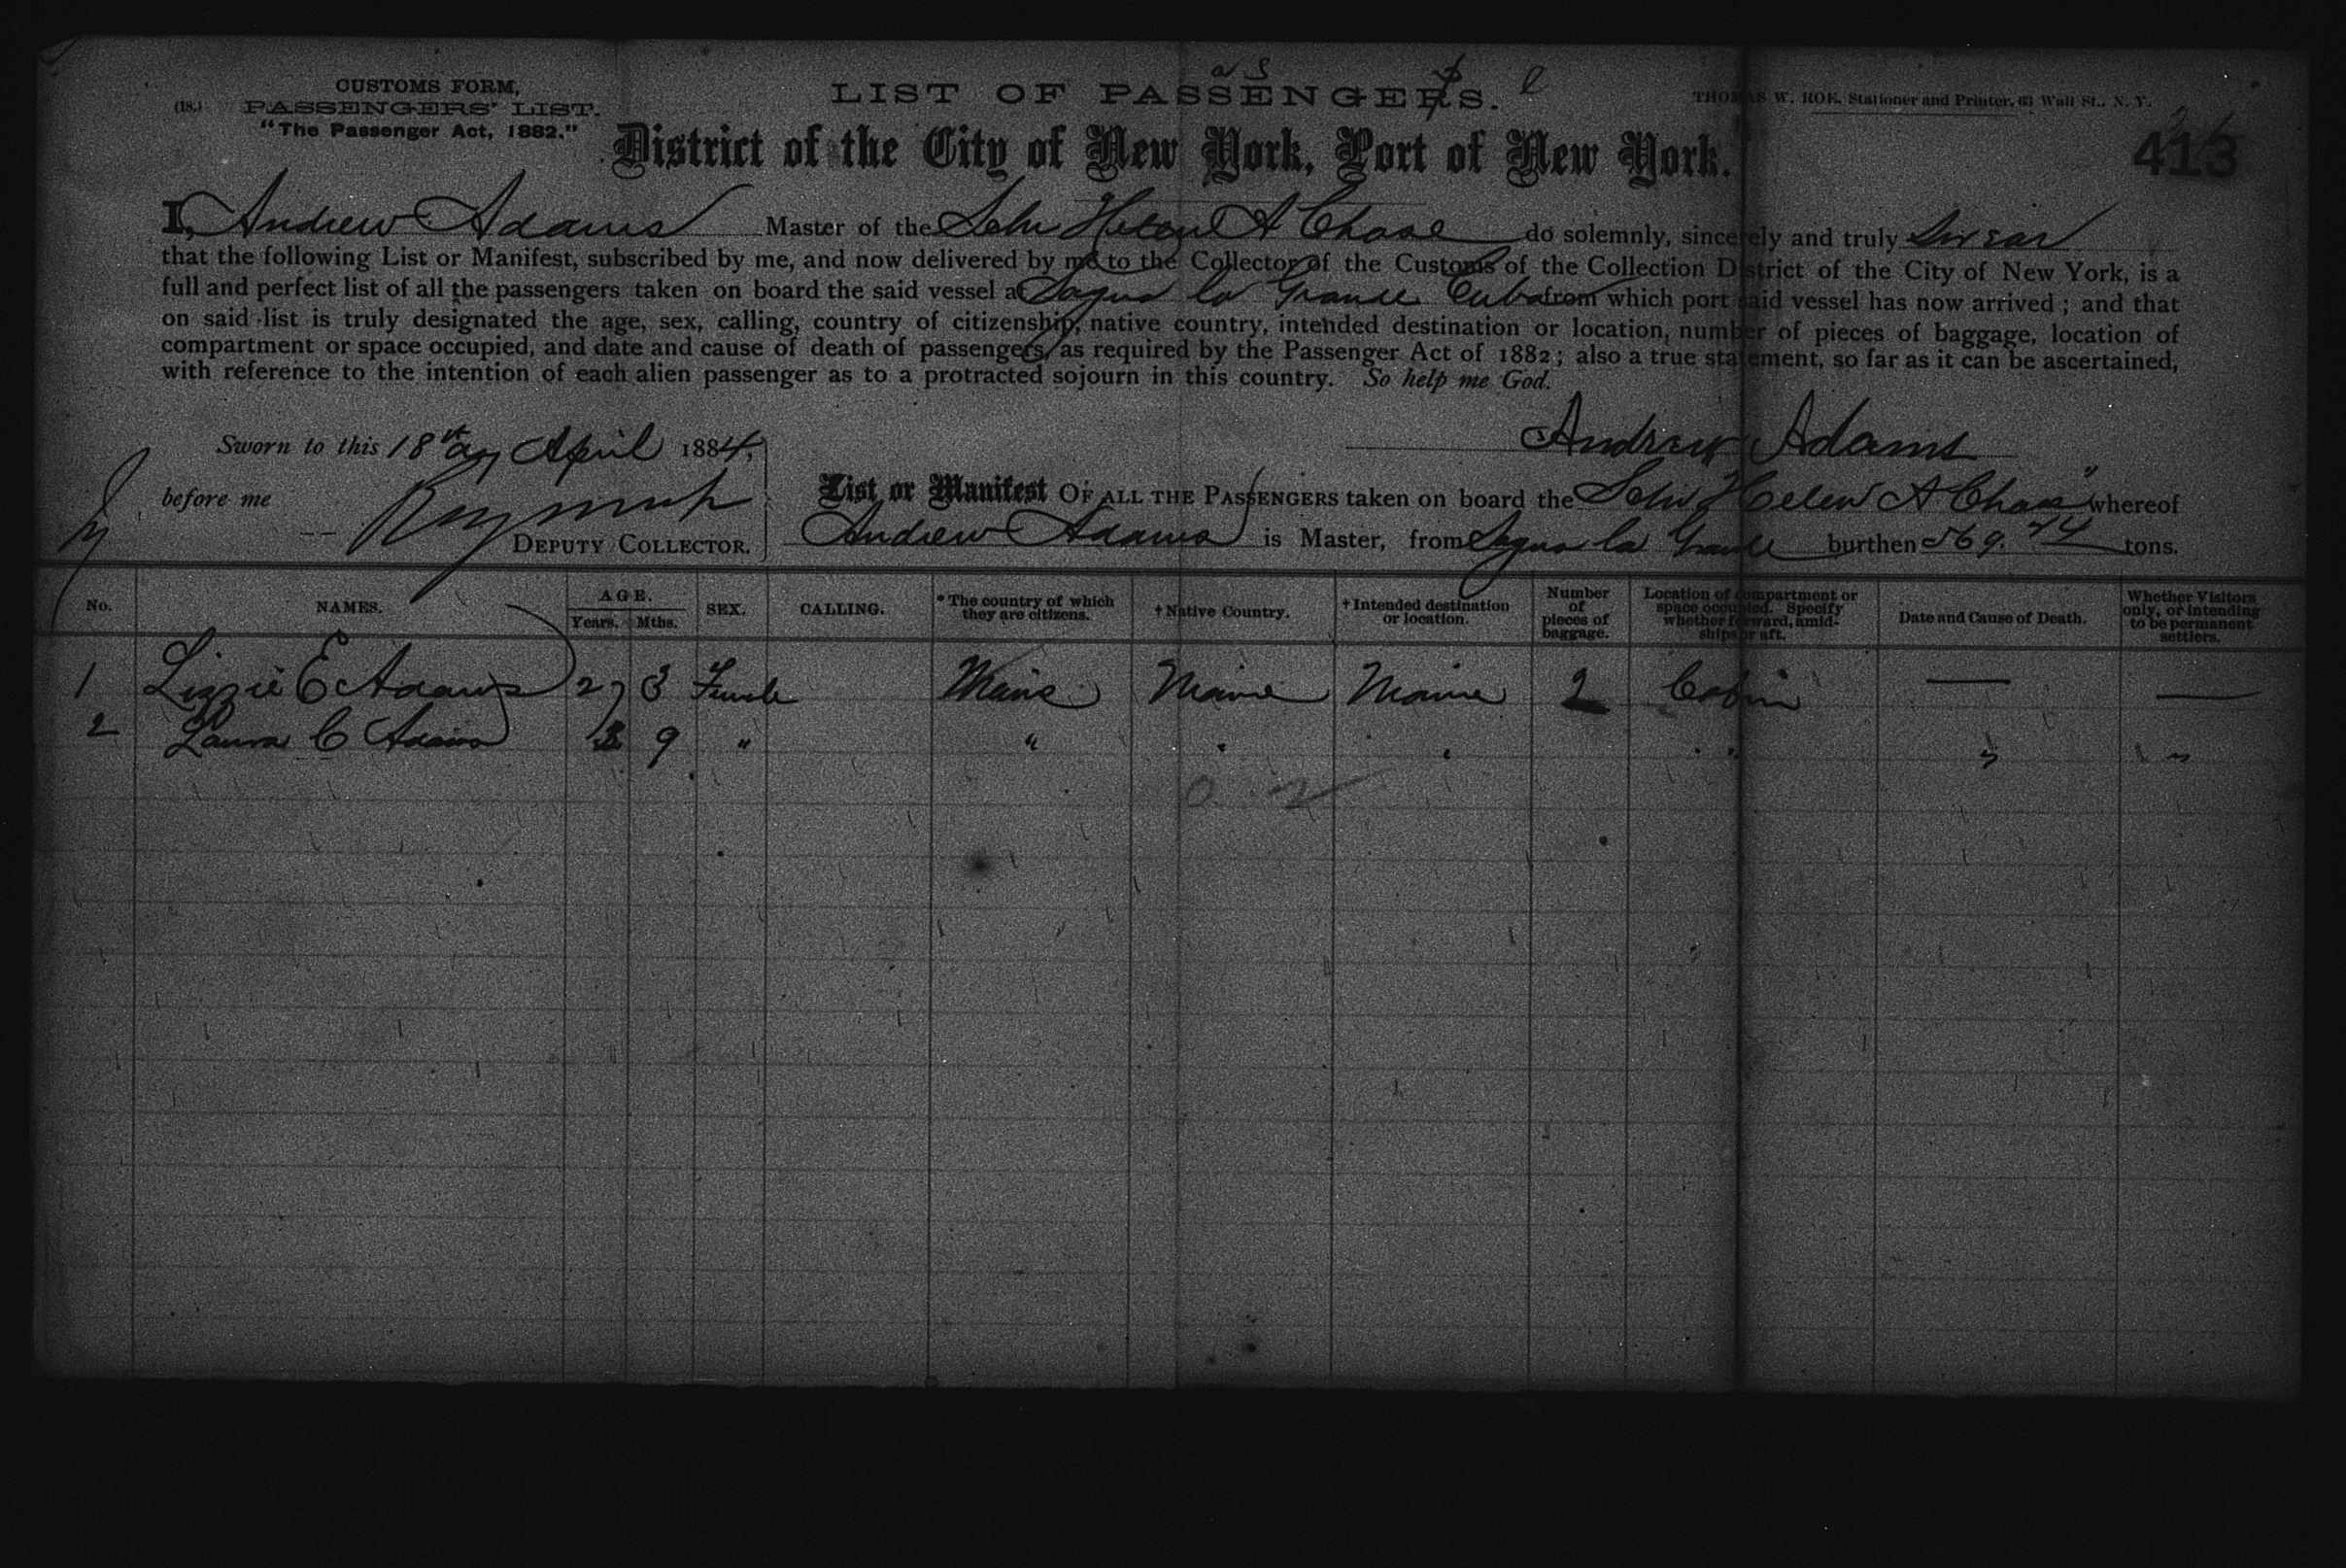 CUSTOMS FORM,
(18.) PASSENGERS' LIST.
"The Passenger Act, 1882."
LIST OF PASSENGERS.
THOMAS W. ROE, Stationer and Printer, 63 Wall St., N. Y.
District of the City of New York, Port of New York.
413
I, Andrew Adams Master of the Schr Helen A Chase do solemnly, sincerely and truly Swear
that the following List or Manifest, subscribed by me, and now delivered by me to the Collector of the Customs of the Collection District of the City of New York, is a
full and perfect list of all the passengers taken on board the said vessel at Sagua la Grande Cuba from which port said vessel has now arrived; and that
on said list is truly designated the age, sex, calling, country of citizenship, native country, intended destination or location, number of pieces of baggage, location of
compartment or space occupied, and date and cause of death of passengers, as required by the Passenger Act of 1882; also a true statement, so far as it can be ascertained,
with reference to the intention of each alien passenger as to a protracted sojourn in this country. So help me God.
Andrew Adams
Sworn to this 18th day April 1884,
before me
DEPUTY COLLECTOR.
List or Manifest OF ALL THE PASSENGERS taken on board the Schr "Helen A Chase" whereof
Andrew Adams is Master, from Sagua la Grande burthen 569. 74 tons.
No. NAMES. AGE. Years. Mths. SEX. CALLING. * The country of which they are citizens. † Native Country. † Intended destination or location. Number of pieces of baggage. Location of compartment or space occupied. Specify whether forward, amidships or aft. Date and Cause of Death. Whether Visitors only, or intending to be permanent settlers.
1 Lizzie E Adams 27 3 Female Maine Maine Maine 2 Cabin —— ——
2 Laura C Adams 9 " " " " " " "
0 2